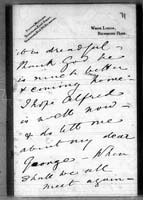 White Lodge,
Richmond Park.
was dreadful,
thank God he
is much better
& coming home –
I hope Alfred
is well now –
& do tell me
about my dear
George – When
shall we all
meet again –